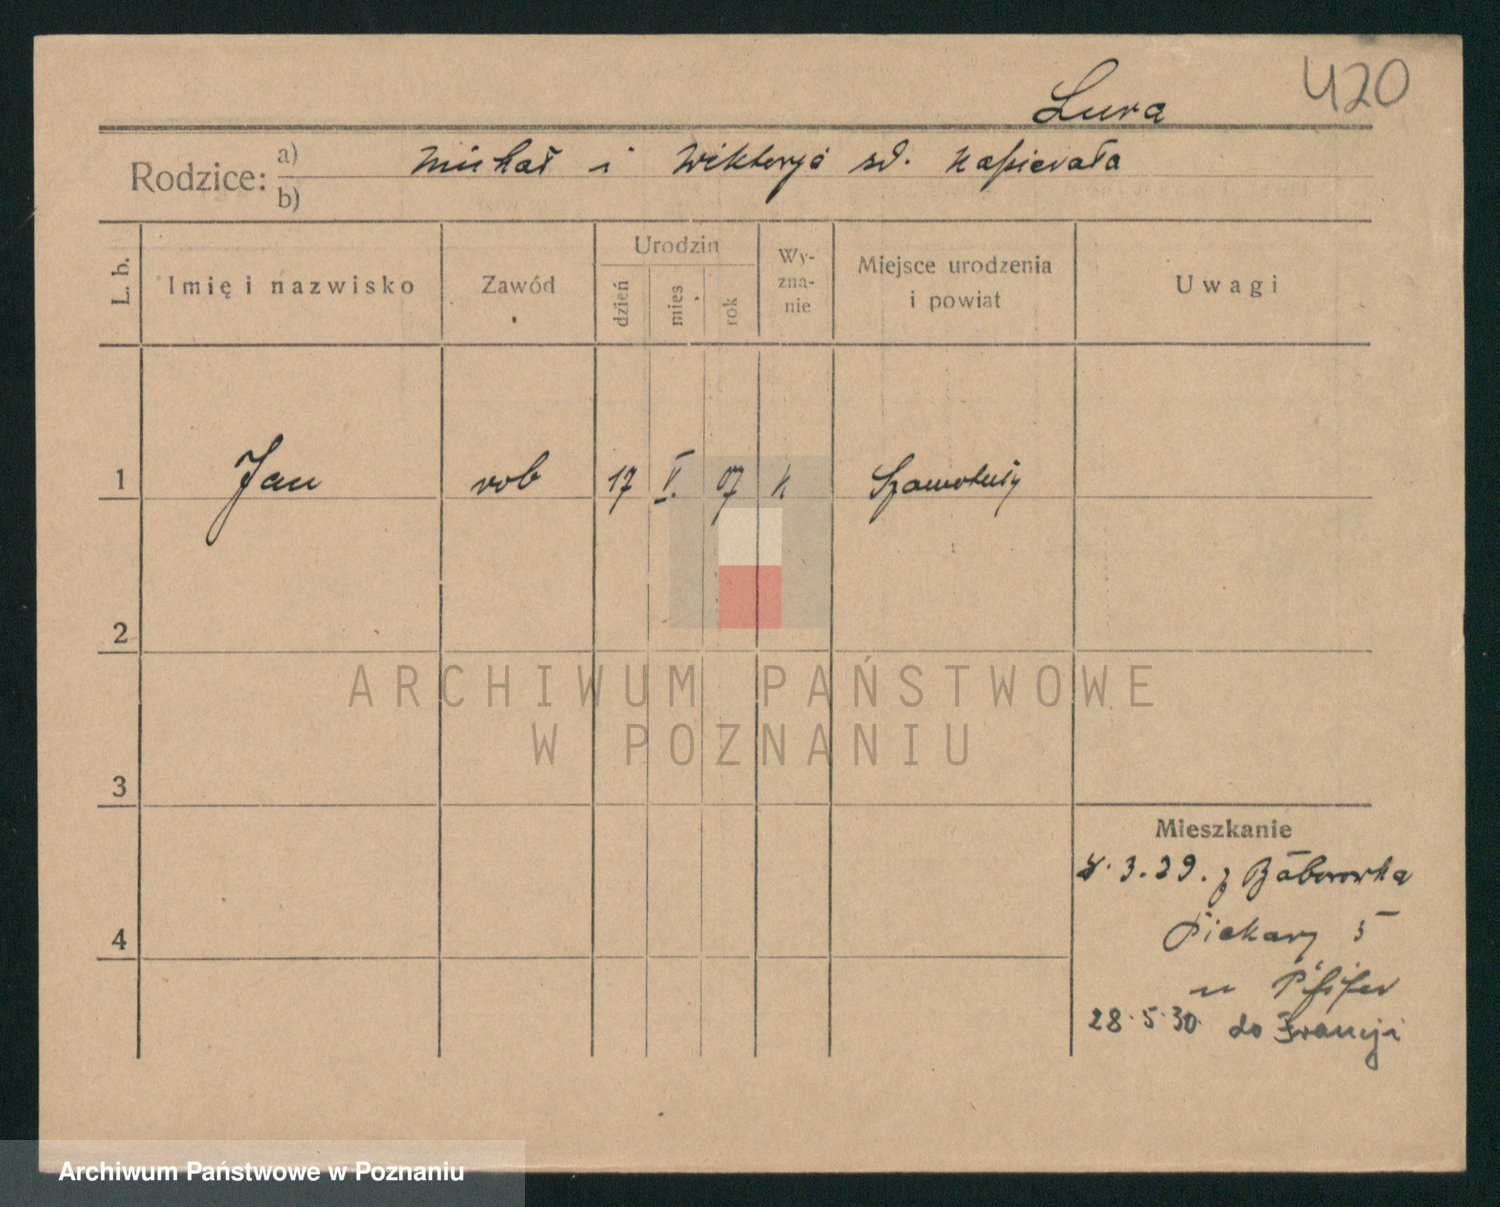 420
Lura
Rodzice: a) Michał i Wiktorja
b)
L. b.
Imię i nazwisko
Zawód
Urodzin
dzień
mies
rok
Wy-
zna-
nie
Miejsce urodzenia
i powiat
Uwagi
1 Jan rob 17 V. 07 k Szamotuły
2
3
4
Mieszkanie
3.29. z Baborowka
Piekary 5
u Pfifer
28.5.30 do Francji
ARCHIWUM PAŃSTWOWE
W POZNANIU
Archiwum Państwowe w Poznaniu